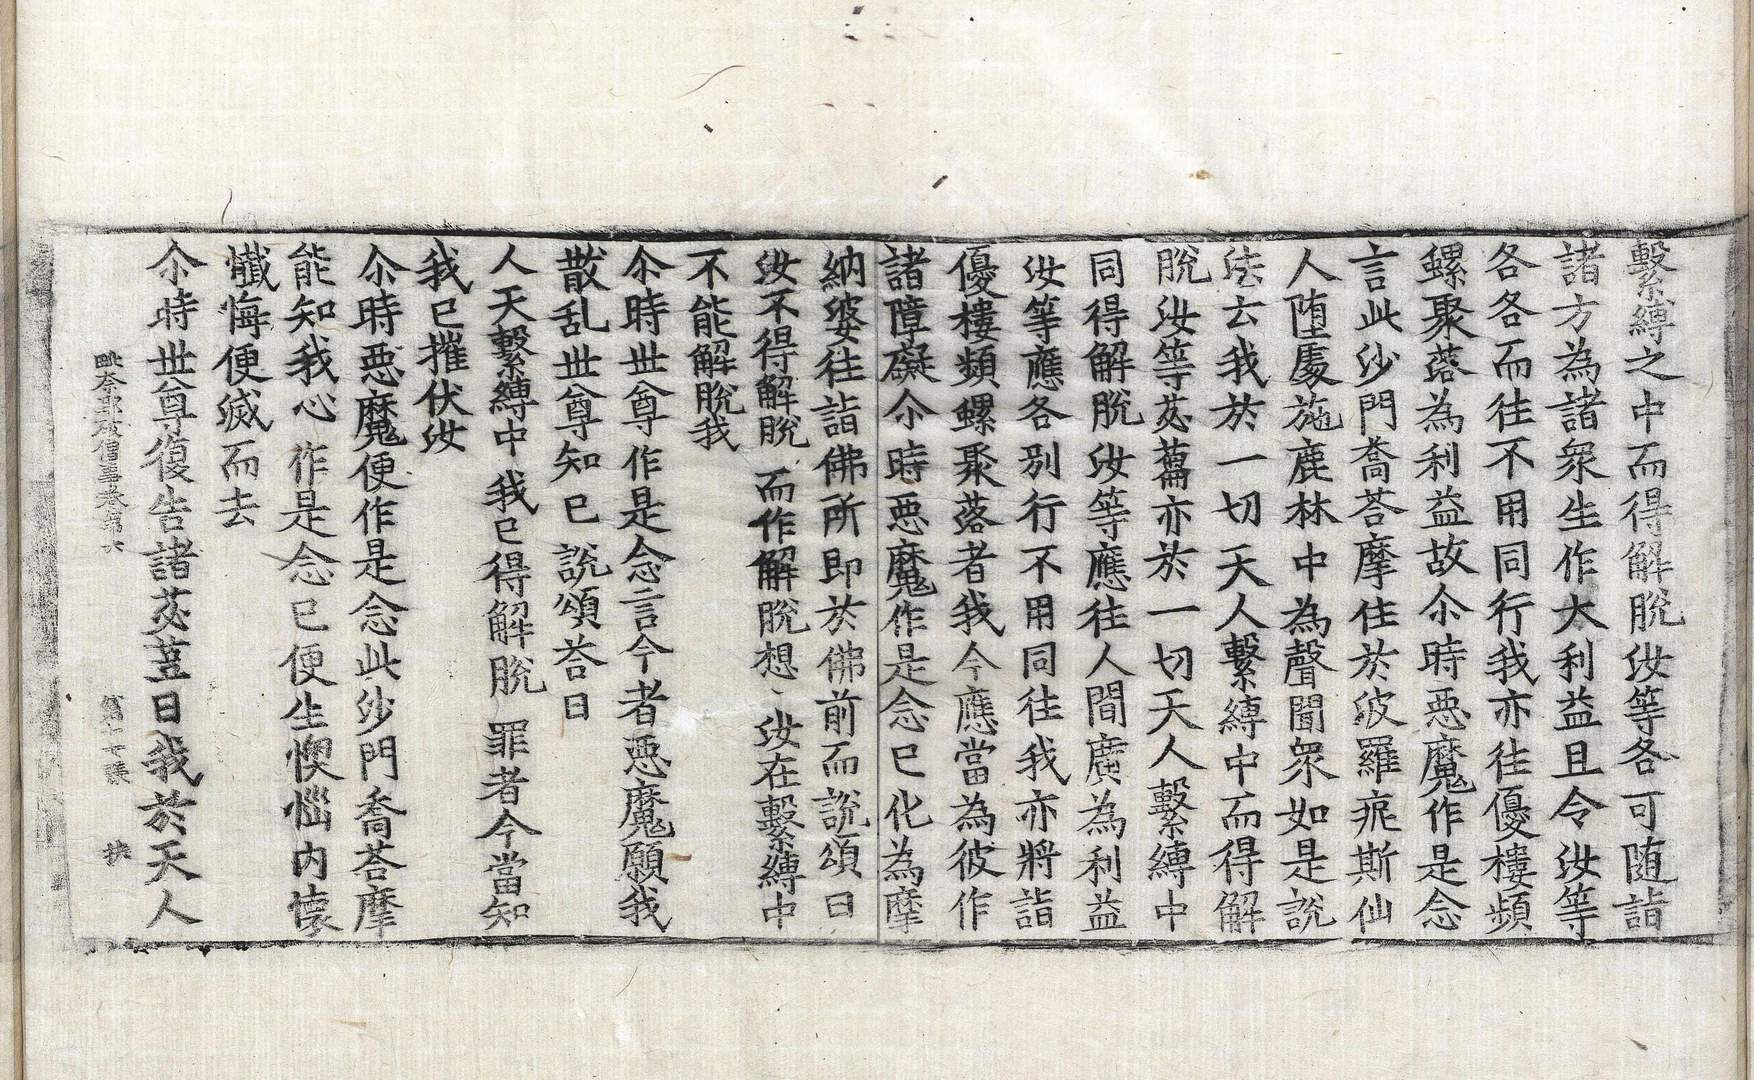 繫縛之中而得解脫汝等各可随詣
諸方為諸衆生作大利益且令汝等
各各而往不用同行我亦往優樓頻
螺聚落為利益故尒時惡魔作是念
言此沙門喬荅摩住於波羅痆斯仙
人墮處施鹿林中為聲聞衆如是說
法云我於一切天人繫縛中而得解
脫汝等苾蒭亦於一切天人繫縛中
同得解脫汝等應往人間廣為利益
汝等應各别行不用同往我亦將詣
優樓頻螺聚落者我今應當為彼作
諸障礙尒時惡魔作是念已化為摩
納婆往詣佛所即於佛前而說頌曰
汝不得解脫 而作解脫想 汝在繫縛中
不能解脫我
尒時世尊作是念言今者惡魔願我
散乱世尊知已說頌荅曰
人天繫縛中 我已得解脫 罪者今當知
我已摧伏汝
尒時惡魔便作是念此沙門喬荅摩
能知我心作是念已便生懊惱内懷
懺悔便滅而去
尒時世尊復告諸苾蒭曰我於天人
毗奈耶破僧事卷第六 第十七張